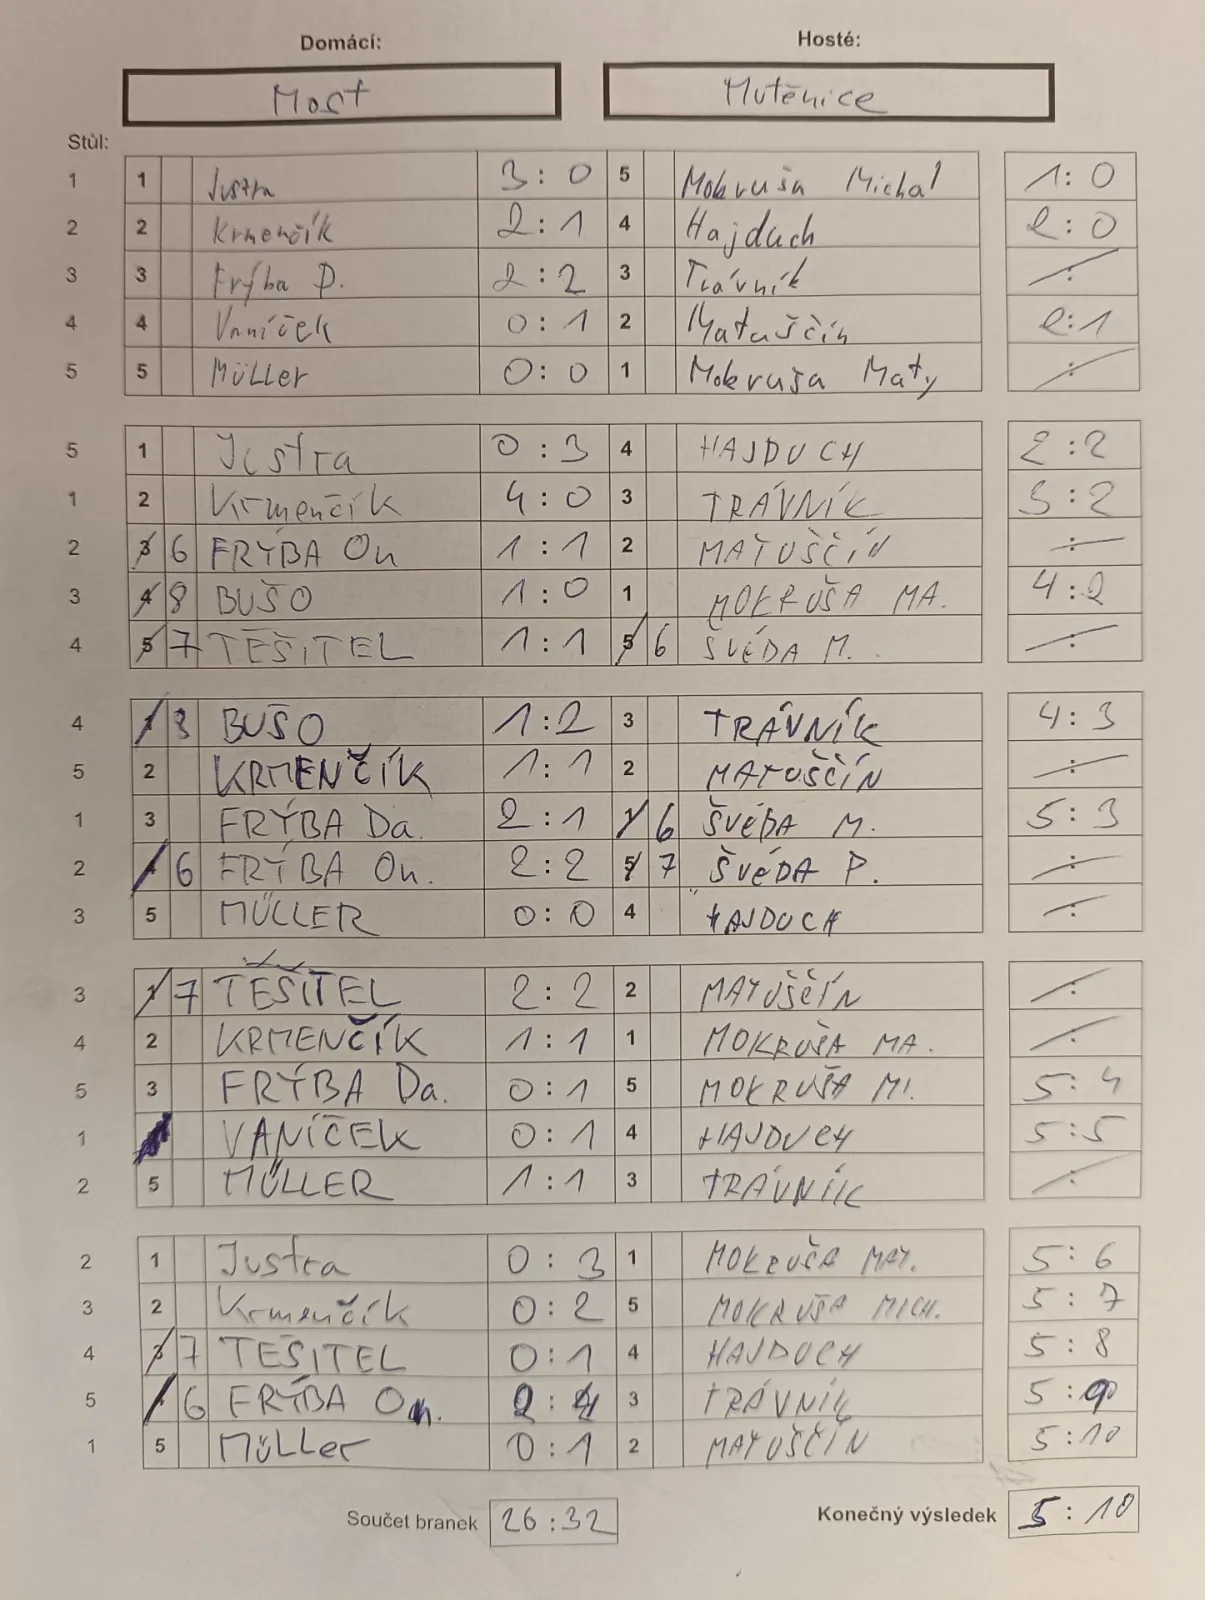 Domácí: Hosté:
Most Mutěnice
Stůl:
1 1 Justra 3:0 5 Mokruša Michal 1:0
2 2 Krmenčík 2:1 4 Hajduch 2:0
3 3 Frýba D. 2:2 3 Trávník :
4 4 Vaníček 0:1 2 Matuščín 2:1
5 5 Müller 0:0 1 Mokruša Maty :
5 1 Justra 0:3 4 HAJDUCH 2:2
1 2 Krmenčík 4:0 3 TRÁVNÍK 3:2
2 3 6 FRÝBA On 1:1 2 MATUŠČÍN :
3 4 8 BUŠO 1:0 1 MOKRUŠA MA. 4:2
4 5 7 TĚŠITEL 1:1 5 6 ŠVÉDA M. :
4 1 8 BUŠO 1:2 3 TRÁVNÍK 4:3
5 2 KRMENČÍK 1:1 2 MATUŠČÍN :
1 3 FRÝBA Da. 2:1 1 6 ŠVÉDA M. 5:3
2 6 FRÝBA On. 2:2 5 7 ŠVÉDA P. :
3 5 MÜLLER 0:0 4 HAJDUCH :
3 1 7 TĚŠITEL 2:2 2 MATUŠČÍN :
4 2 KRMENČÍK 1:1 1 MOKRUŠA MA. :
5 3 FRÝBA Da. 0:1 5 MOKRUŠA MI. 5:4
1 VANÍČEK 0:1 4 HAJDUCH 5:5
2 5 MÜLLER 1:1 3 TRÁVNÍK :
2 1 Justra 0:3 1 MOKRUŠA MAT. 5:6
3 2 Krmenčík 0:2 5 MOKRUŠA MICH. 5:7
4 3 7 TĚŠITEL 0:1 4 HAJDUCH 5:8
5 6 FRÝBA On. 2:4 3 TRÁVNÍK 5:9
1 5 Müller 0:1 2 MATUŠČÍN 5:10
Součet branek 26:32 Konečný výsledek 5:10